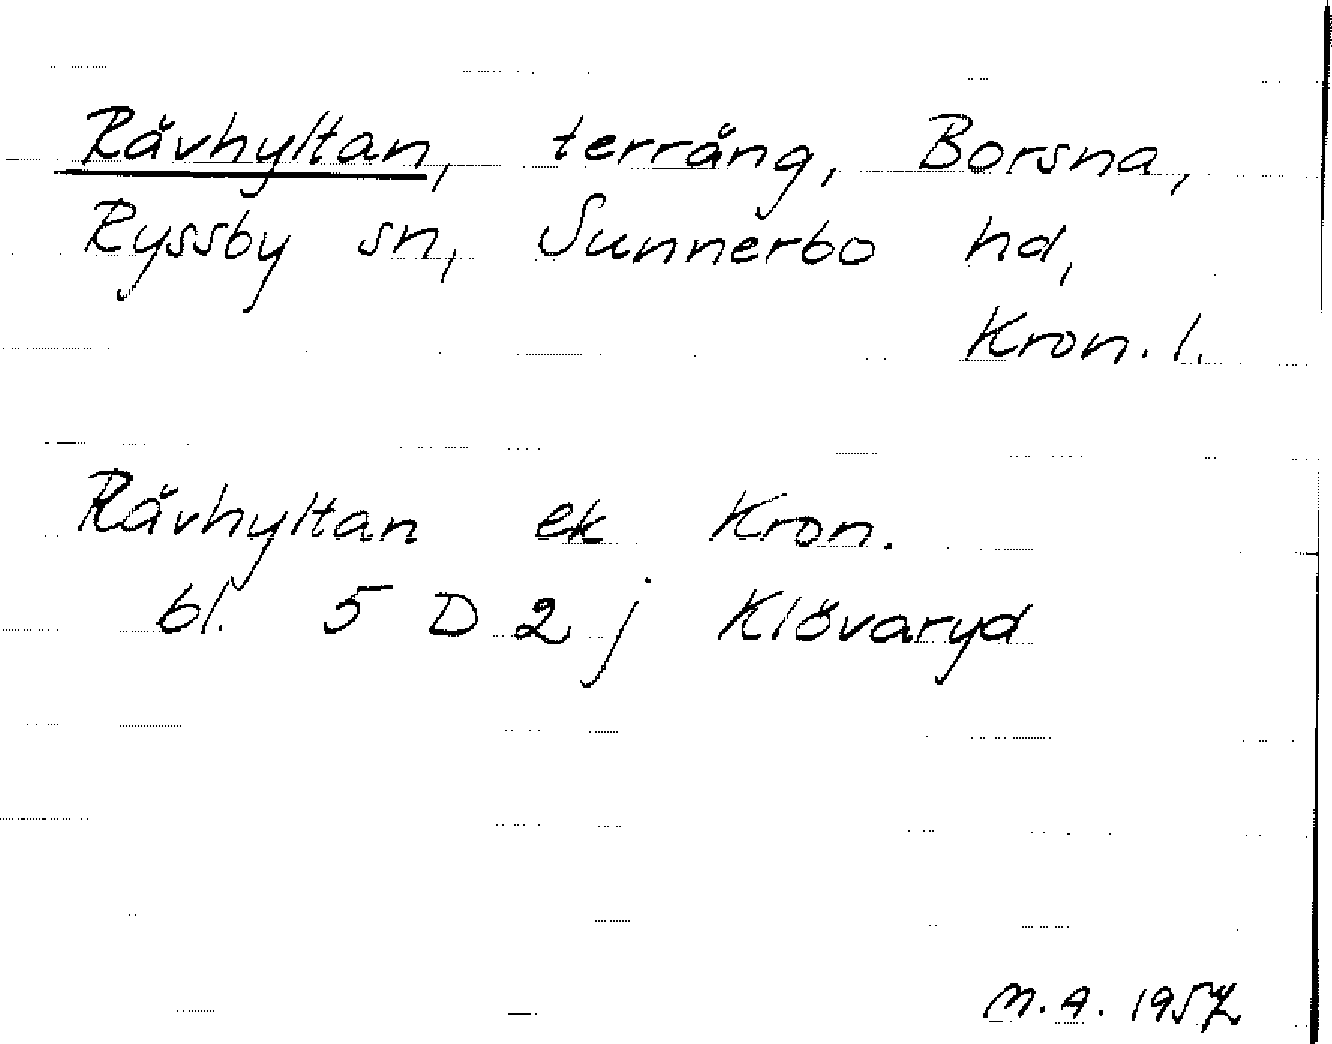 Rävhyltan, terräng, Borsna,
Ryssby sn, Sunnerbo hd,
Kron. l.
Rävhyltan ek Kron.
bl. 5 D 2 j Klövaryd
M.A. 1957